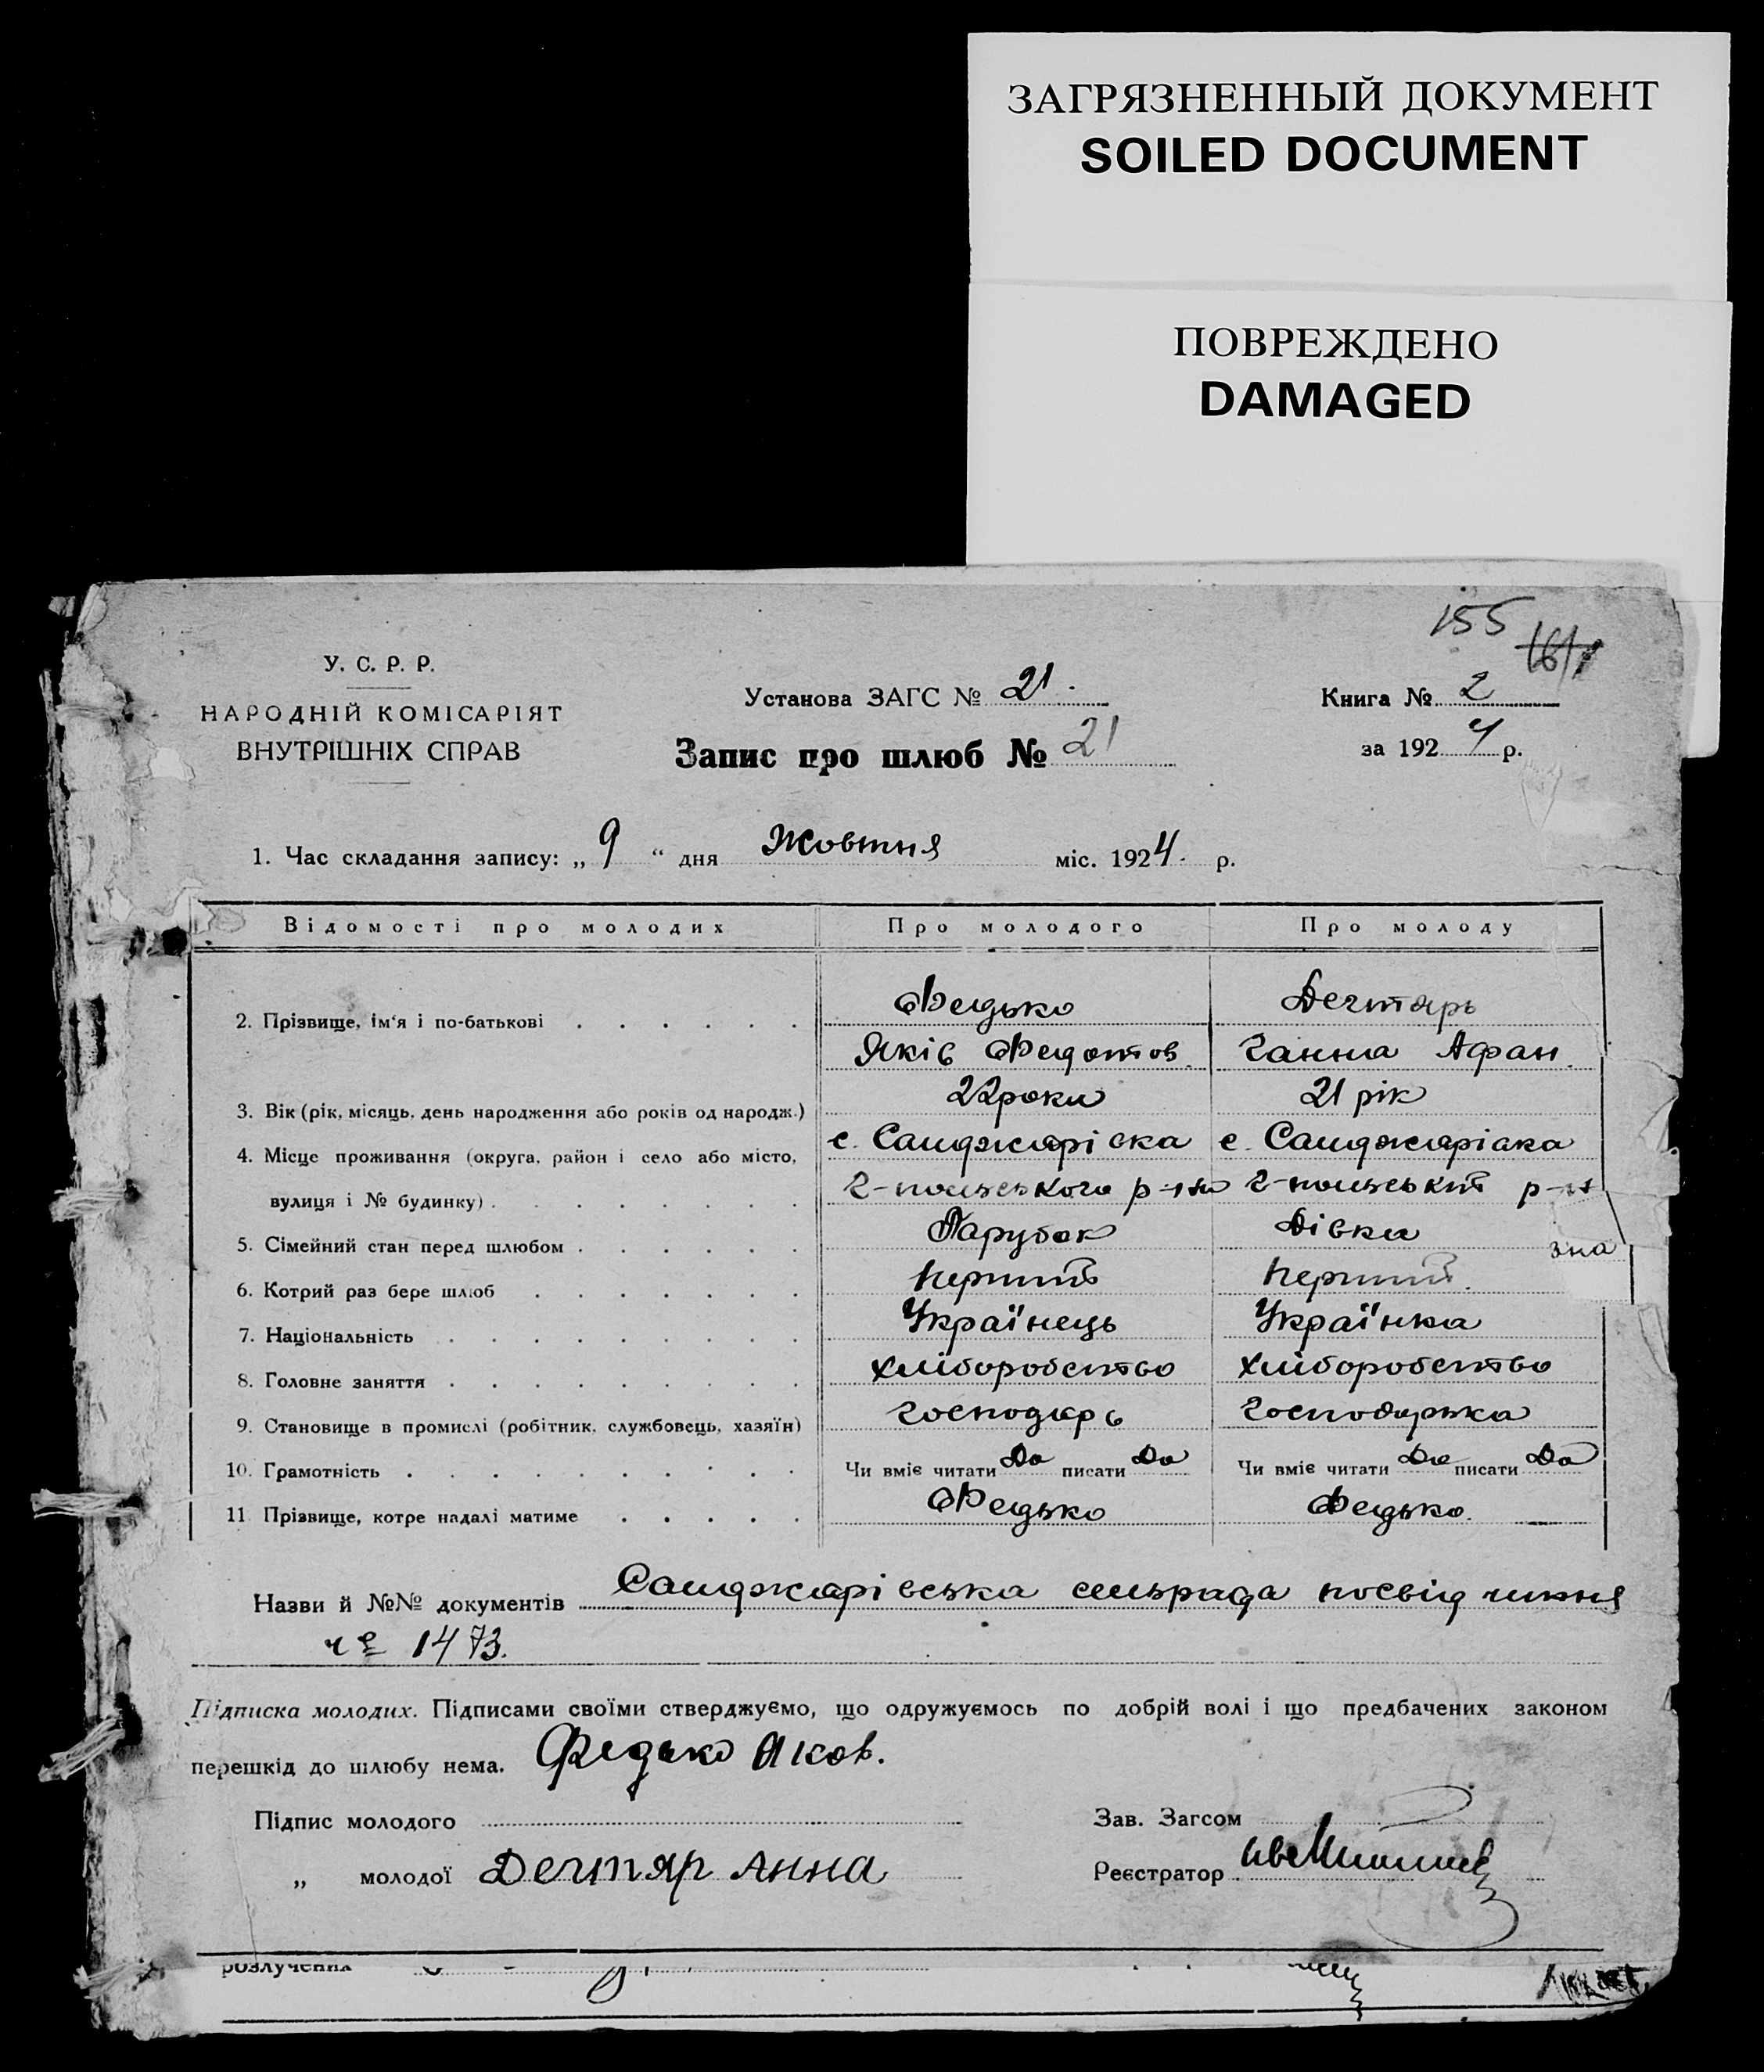 ЗАГРЯЗНЕННЫЙ ДОКУМЕНТ
SOILED DOCUMENT
ПОВРЕЖДЕНО
DAMAGED
155
У. С. Р. Р.
НАРОДНІЙ КОМІСАРІЯТ
ВНУТРІШНІХ СПРАВ
Установа ЗАГС № 21.
Запис про шлюб № 21
Книга № 2
за 1924 р.
1. Час складання запису: „ 9 “ дня Жовтня міс. 1924. р.
Відомості про молодих Про молодого Про молоду
2. Прізвище, ім'я і по-батькові . . . . . . Федько Дегтярь
Яків Федотов. Ганна Афан.
3. Вік (рік, місяць, день народження або років од народж.) 22 роки 21 рік
4. Місце проживання (округа, район і село або місто, с. Санджарівка с. Санджарівка
вулиця і № будинку) . . . . . . . . Г-польського р-ну Г-польськ р-н
5. Сімейний стан перед шлюбом . . . . . . Парубок Дівка
6. Котрий раз бере шлюб . . . . . . . Перший Перший.
7. Національність . . . . . . . . . Українець Українка
8. Головне заняття . . . . . . . . . хліборобство хліборобство
9. Становище в промислі (робітник, службовець, хазяїн) господарь Господарька
10. Грамотність . . . . . . . . . . Чи вміє читати Да писати Да Чи вміє читати Да писати Да
11. Прізвище, котре надалі матиме . . . . . Федько Федько.
Назви й №№ документів Санджарівська сільрада посвідчиння
1473.
Підписка молодих. Підписами своїми стверджуємо, що одружуємось по добрій волі і що предбачених законом
перешкід до шлюбу нема. Федько Яков.
Підпис молодого
Зав. Загсом
„ молодої Дегтяр Анна
Реєстратор
розлучених